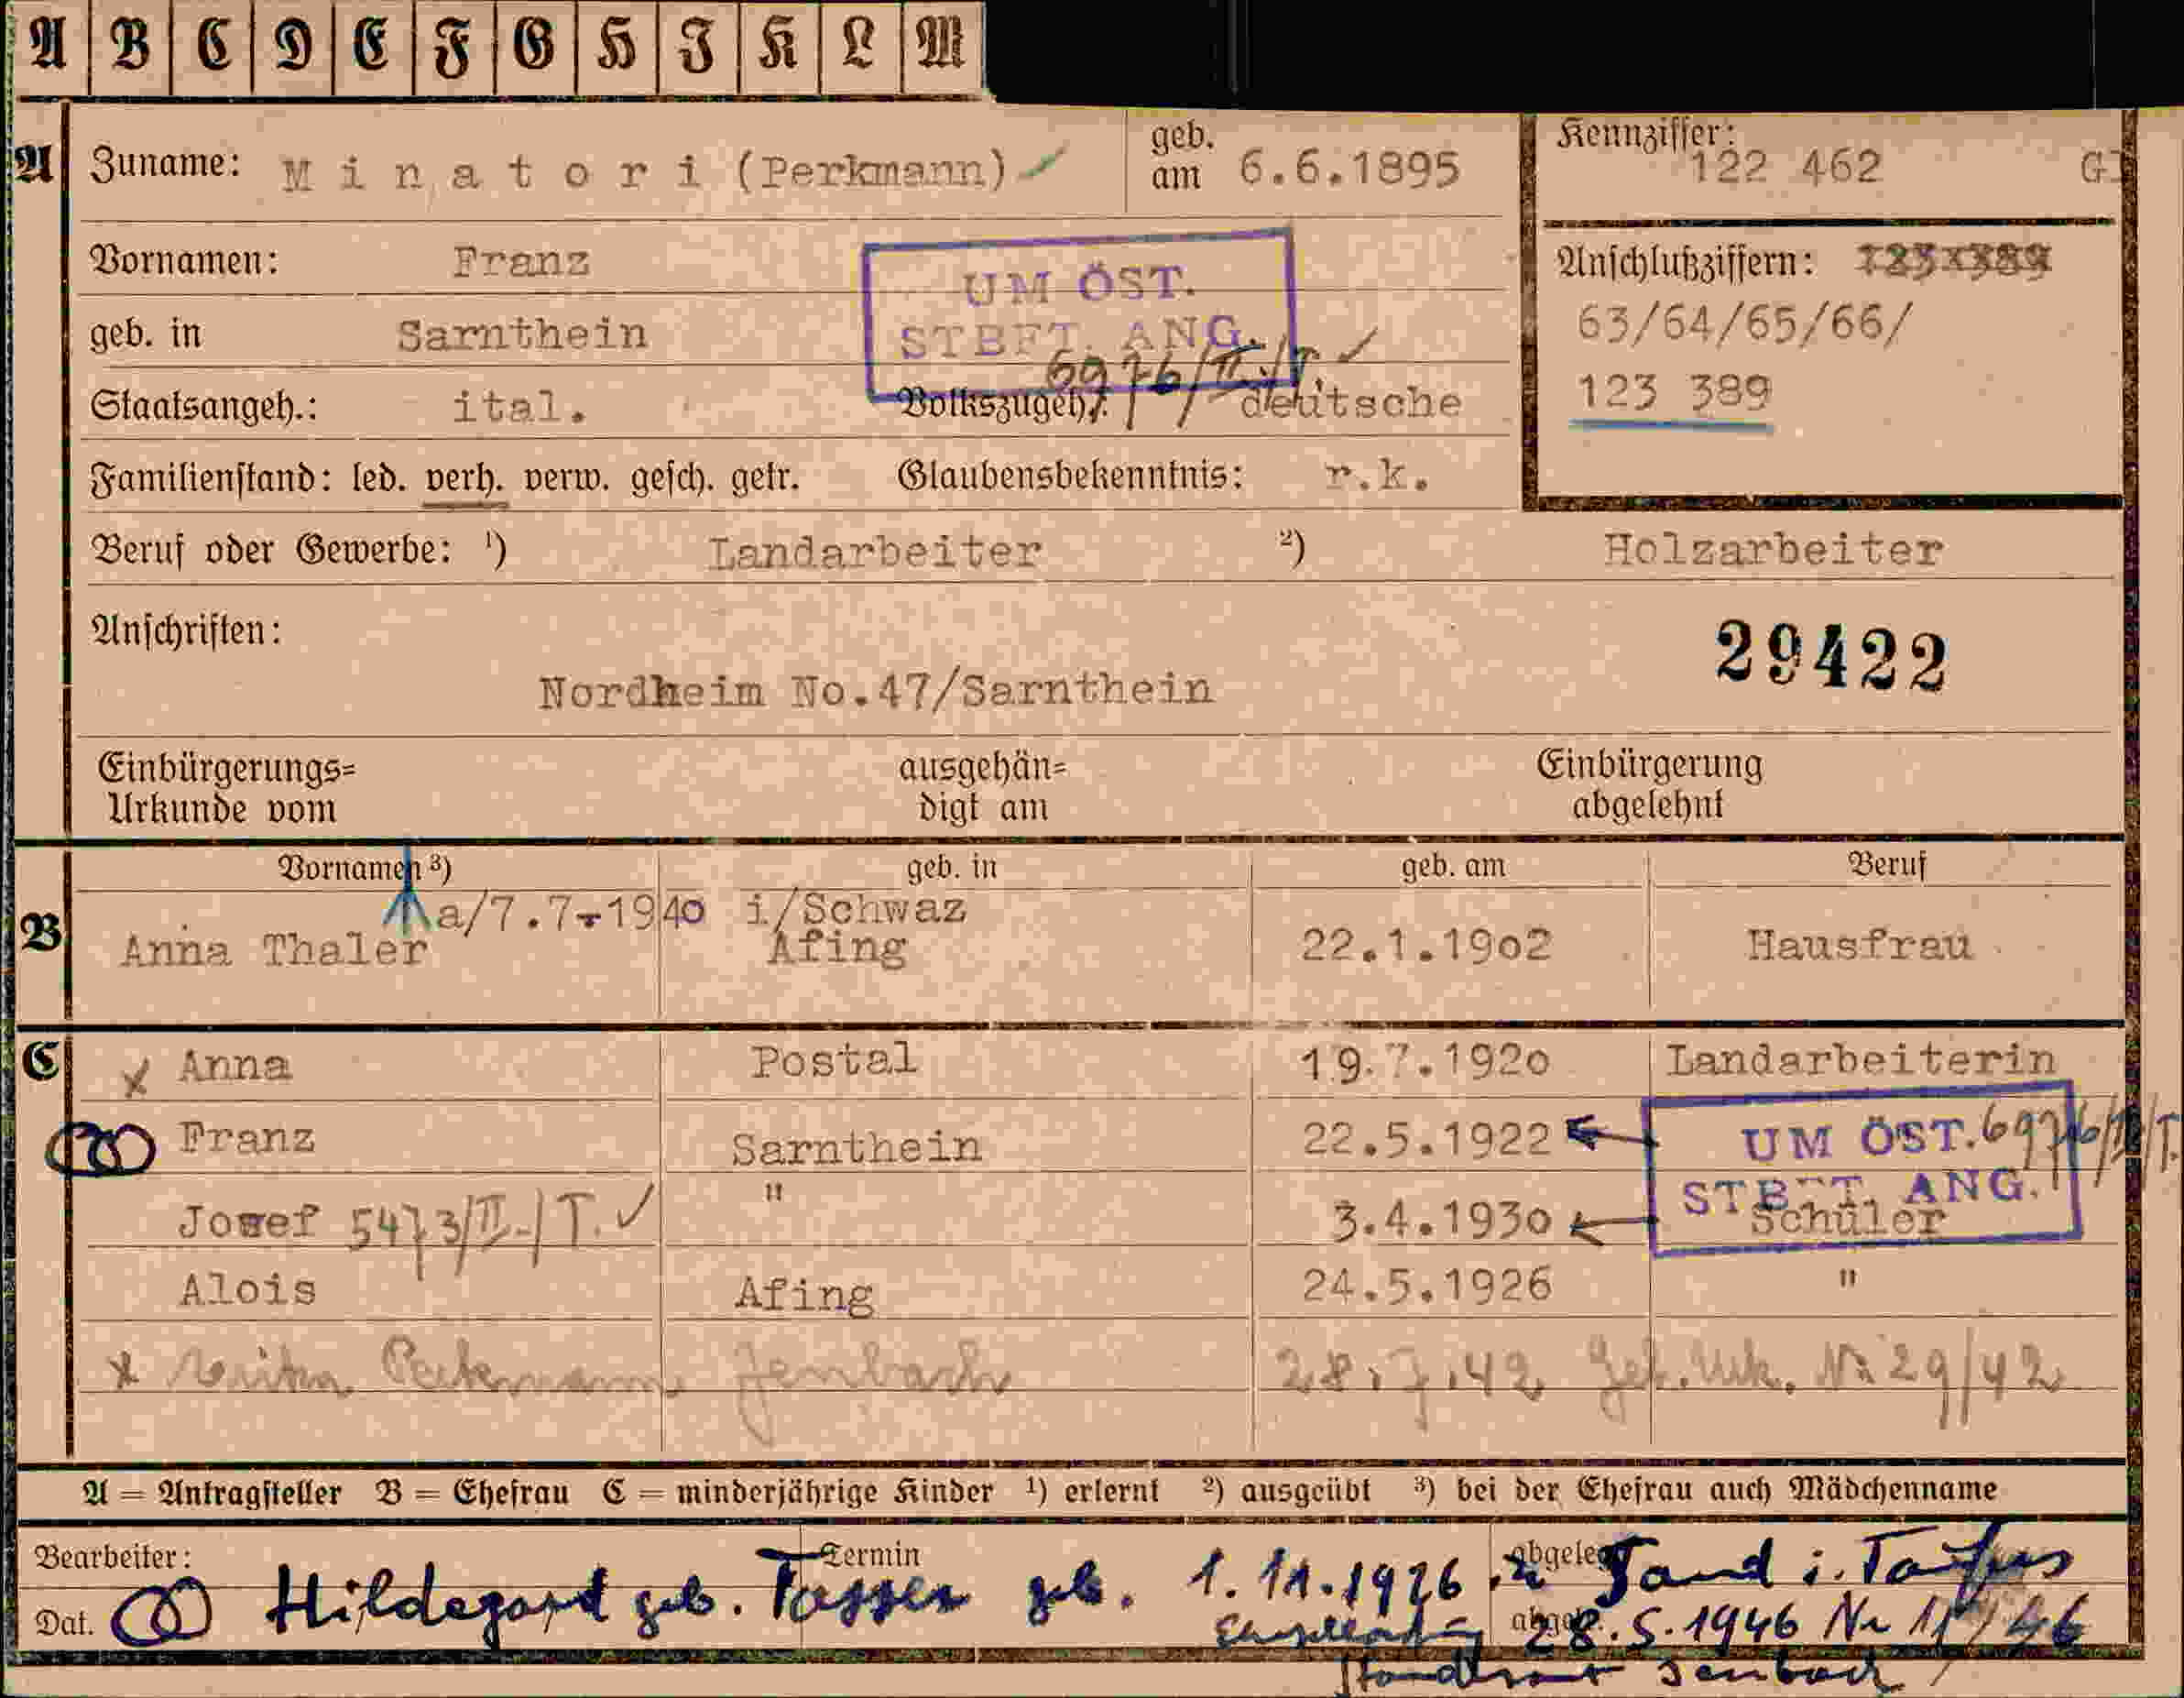 A B C D E F G H I K L M
A
Zuname: M i n a t o r i (Perkmann)
geb. am 6.6.1895
Kennziffer: 122 462 GJ
Vornamen: Franz
UM ÖST.
STBFT. ANG.
6976/II./T.
Anschlußziffern: 123 389
63/64/65/66/
123 389
geb. in Sarnthein
Staatsangeh.: ital. Volkszugeh.: deutsche
Familienstand: led. verh. verw. gesch. getr. Glaubensbekenntnis: r.k.
Beruf oder Gewerbe: ¹) Landarbeiter ²) Holzarbeiter
Anschriften:
29422
Nordheim No.47/Sarnthein
Einbürgerungs=
Urkunde vom
ausgehän=
digt am
Einbürgerung
abgelehnt
B
Vornamen ³) geb. in geb. am Beruf
a/7.7.1940 i/Schwaz
Anna Thaler Afing 22.1.1902 Hausfrau
C
x Anna Postal 19.7.1920 Landarbeiterin
Franz Sarnthein 22.5.1922
UM ÖST. 6976/II/T.
STBFT. ANG.
Josef 5473/II./T. " 3.4.1930 Schüler
Alois Afing 24.5.1926 "
x Perkmann Jenbach 28.7.42 Geb.Urk. Nr 29/42
A = Antragsteller B = Ehefrau C = minderjährige Kinder ¹) erlernt ²) ausgeübt ³) bei der Ehefrau auch Mädchenname
Bearbeiter: Termin abgelegt
Dat. Hildegard geb. Tasser geb. 1.11.1926 in Sand i. Taufers
Eheschließung 28.5.1946 Nr 11/46
Standesamt Jenbach